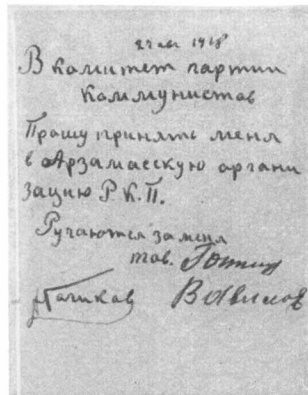 1918
В комитет партии
Коммунистов
Прошу принять меня
в Арзамасскую органи
зацию Р.К.П.
Ручаются за меня
тов.
Голиков Вавилов